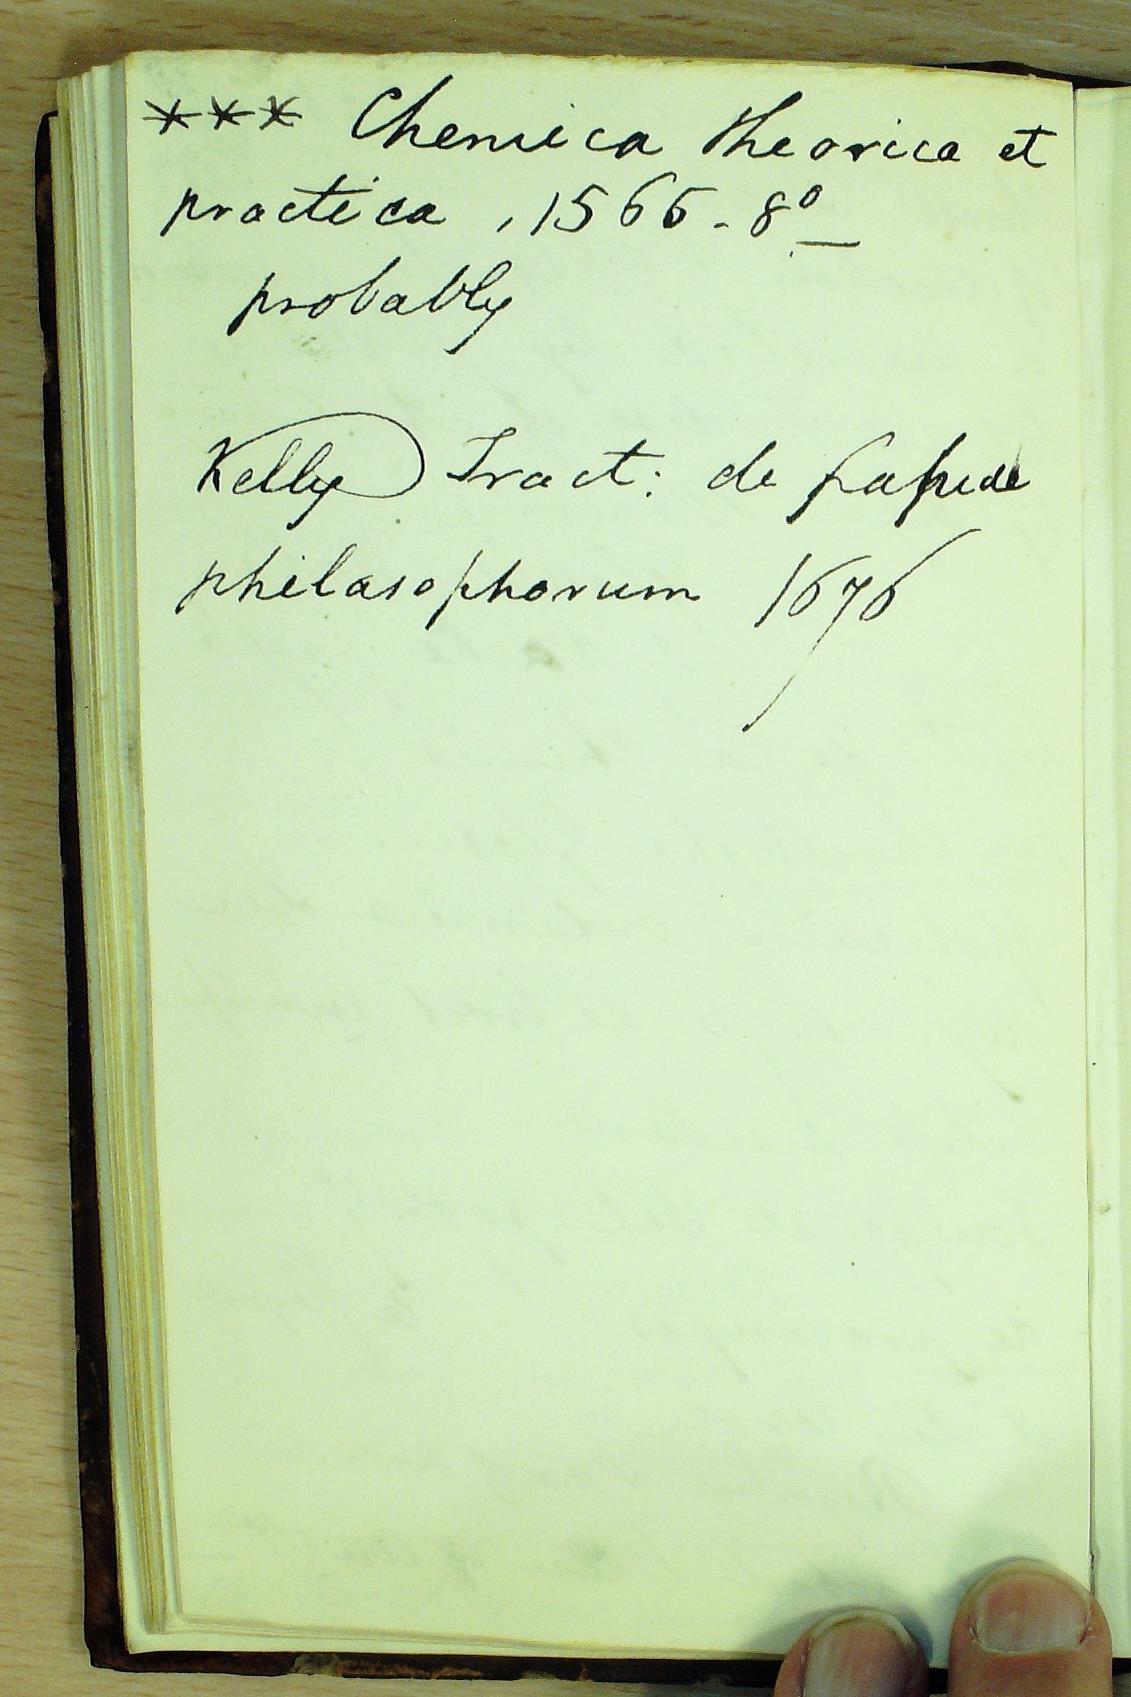 *** Chemica theorica et
practica, 1566 - 8º
probably
Kelly) Tract: de Lapide
philasophorum 1676